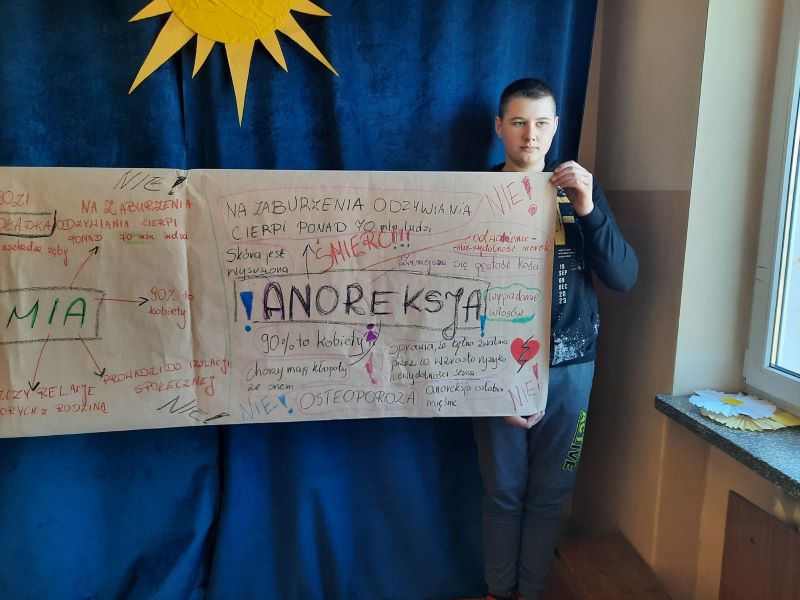 NIE!
NA ZABURZENIA
ODŻYWIANIA CIERPI
PONAD 70 mln ludzi
90% to
kobiety
MIA
PROWADZI DO IZOLACJI
SPOŁECZNEJ
RELACJE
Z RODZINĄ
NIE!
NA ZABURZENIA ODŻYWIANIA
CIERPI PONAD 70 mln ludzi
NIE!
ŚMIERĆ!!!
Skóra jest
wysuszona
odwodnienie
niewydolność nerek
zmniejsza się gęstość kości
!ANOREKSJA!
wypadanie
włosów
90% to kobiety
chorzy mają kłopoty
ze snem
sprawia, że tętno zwalnia
przez co wzrasta ryzyko
niewydolności serca
anoreksja osłabia
mięśnie
NIE!
NIE!
OSTEOPOROZA
ACTIVE